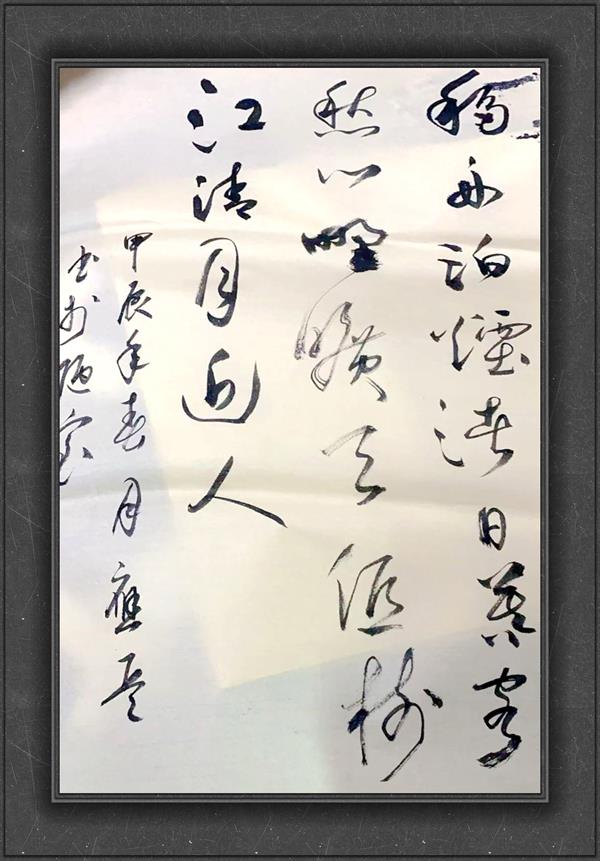 移舟泊煙渚日暮客
愁野曠天低樹
江清月近人
甲辰年春月應
書於陋室